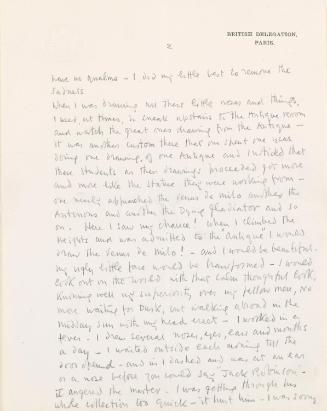 BRITISH DELEGATION,
PARIS.
2
have no qualms - I did my little best to remove the
sadness
When I was drawing all these little noses and things,
I used, at times, to sneak upstairs to the Antique room
and watch the great ones drawing from the Antique -
it was another custom there that one spent one year
doing one drawing of one Antique and I noticed that
these students as their drawings proceeded got more
and more like the statue they were working from -
one nearly approached the Venus de milo another the
Antinous and another the Dying Gladiator and so
on. Here I saw my chance! when I climbed the
heights and was admitted to the antique I would
draw the Venus de Milo! - and I would be beautiful.
my ugly little face would be transformed - I would
look out on the world with that calm thoughtful look,
knowing well my superiority over my fellow men, no
more waiting for dusk, but walking abroad in the
midday sun with my head erect - I worked in a
fever - I drew several noses, eyes, ears and mouths
a day - I waited outside each morning till the
door opened - and in I dashed and was at an ear
or a nose before you could say "Jack Robinson" -
It angered the master - I was getting through his
whole collection too quick - it hurt him - I was sorry